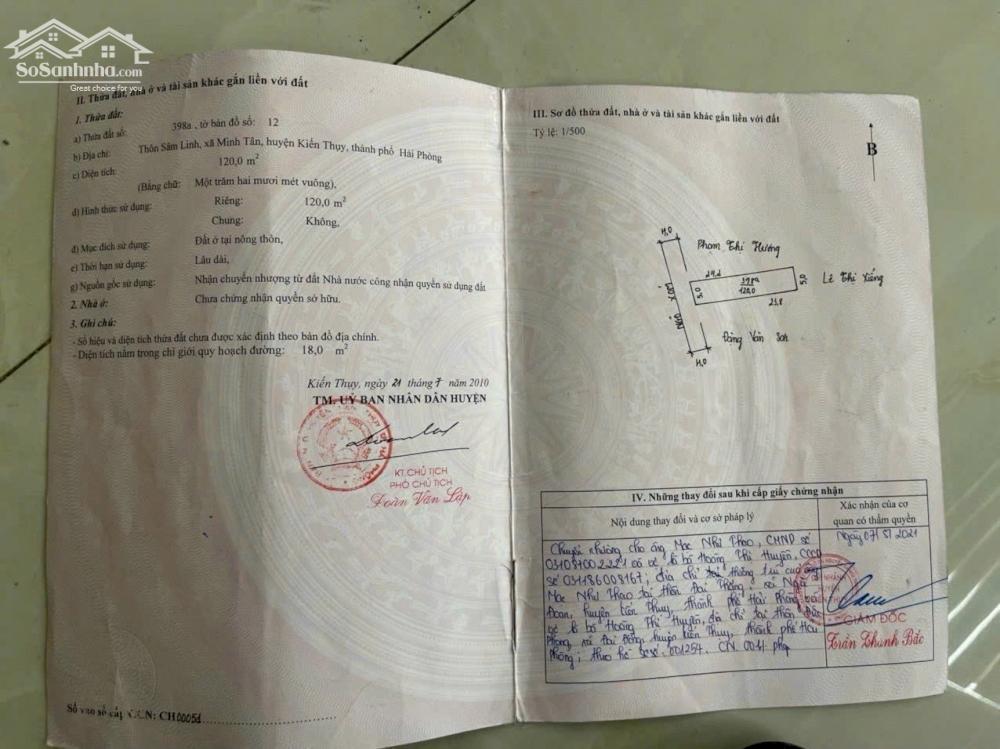 SoSanhnha.com
Great choice for you
II. Thửa đất, nhà ở và tài sản khác gắn liền với đất
1. Thửa đất:
a) Thửa đất số: 398a , tờ bản đồ số: 12
b) Địa chỉ: Thôn Sâm Linh, xã Minh Tân, huyện Kiến Thụy, thành phố Hải Phòng
c) Diện tích: 120,0 m²
(Bằng chữ: Một trăm hai mươi mét vuông),
d) Hình thức sử dụng: Riêng: 120,0 m²
Chung: Không,
đ) Mục đích sử dụng: Đất ở tại nông thôn,
e) Thời hạn sử dụng: Lâu dài,
g) Nguồn gốc sử dụng: Nhận chuyển nhượng từ đất Nhà nước công nhận quyền sử dụng đất
2. Nhà ở: Chưa chứng nhận quyền sở hữu.
3. Ghi chú:
- Số hiệu và diện tích thửa đất chưa được xác định theo bản đồ địa chính.
- Diện tích nằm trong chỉ giới quy hoạch đường: 18,0 m²
Kiến Thụy, ngày 21 tháng 7 năm 2010
TM. UỶ BAN NHÂN DÂN HUYỆN
KT.CHỦ TỊCH
PHÓ CHỦ TỊCH
Đoàn Văn Lập
Số vào sổ cấp GCN: CH0005
III. Sơ đồ thửa đất, nhà ở và tài sản khác gắn liền với đất
Tỷ lệ: 1/500
B
H,0
Phạm Thị Hương
24,2
398a
120,0
5,0
5,0
Lê Thị
23,8
NGÕ XÓM
Đặng Văn Sơn
H,0
IV. Những thay đổi sau khi cấp giấy chứng nhận
Nội dung thay đổi và cơ sở pháp lý
Xác nhận của cơ
quan có thẩm quyền
Chuyển nhượng cho ông Mạc Như Thao, CMND số
và vợ là bà Hoàng Thị Huyên, CCCD
số 031186008167; địa chỉ thường trú của ông
Mạc Như Thao tại thôn Đại Thắng, xã Ngũ
Đoan, huyện Kiến Thụy, thành phố Hải Phòng và
vợ là bà Hoàng Thị Huyên, địa chỉ tại thôn Đức
Phong, xã Đại Đồng, huyện Kiến Thụy, thành phố Hải
Phòng; theo hồ sơ số: 001254. CN. 001
Ngày 07/5/2021
GIÁM ĐỐC
Trần Thanh Bắc